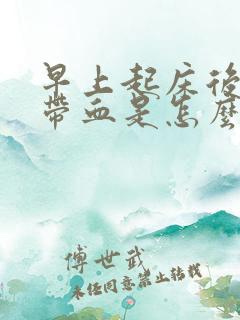 早上起床後
帶血是怎麼
傅世武
未经同意禁止转载